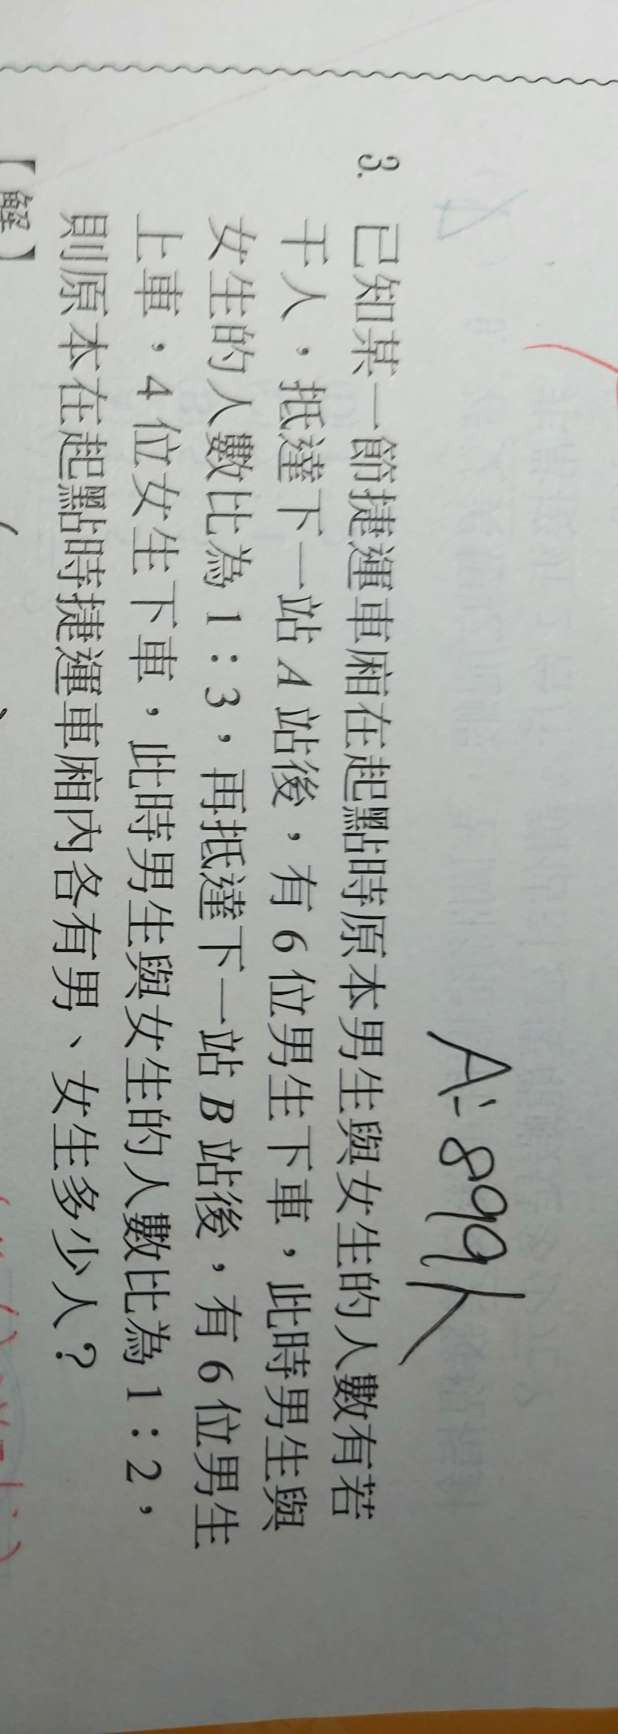 A:899人
3. 已知某一節捷運車廂在起點時原本男生與女生的人數有若
干人，抵達下一站A站後，有6位男生下車，此時男生與
女生的人數比為1：3，再抵達下一站B站後，有6位男生
上車，4位女生下車，此時男生與女生的人數比為1：2，
則原本在起點時捷運車廂內各有男、女生多少人？
【解】